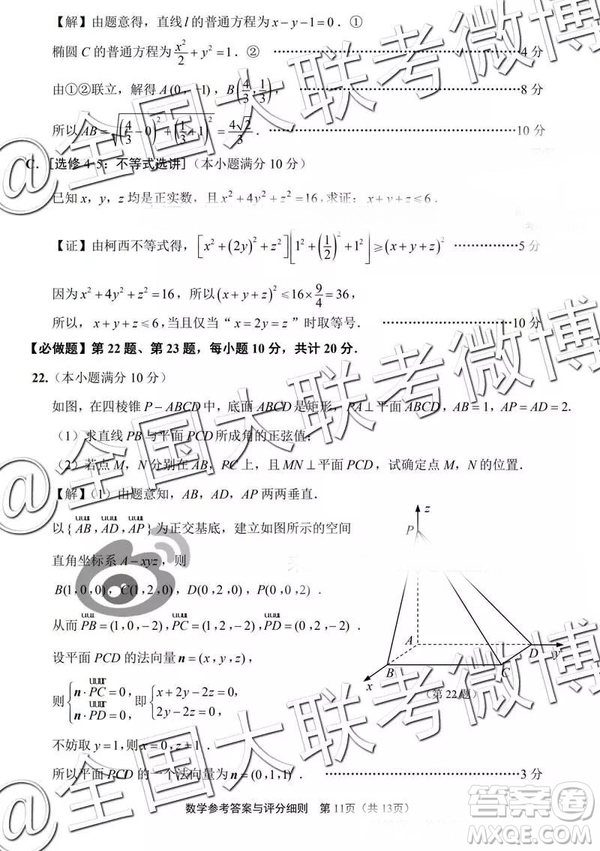 【解】由题意得，直线 l 的普通方程为 x－y－1＝0．①
椭圆 C 的普通方程为 x²/2＋y²＝1．② ………………4 分
由①②联立，解得 A(0，－1)，B(4/3，1/3)， ………………8 分
所以 AB＝√((4/3－0)²＋(1/3＋1)²)＝4√2/3． ………………10 分
C．[选修 4-5：不等式选讲]（本小题满分 10 分）
已知 x，y，z 均是正实数，且 x²＋4y²＋z²＝16，求证：x＋y＋z≤6．
【证】由柯西不等式得，[x²＋(2y)²＋z²][1²＋(1/2)²＋1²]≥(x＋y＋z)² ………………5 分
因为 x²＋4y²＋z²＝16，所以(x＋y＋z)²≤16×9/4＝36，
所以，x＋y＋z≤6，当且仅当“x＝2y＝z”时取等号． ………………10 分
【必做题】第 22 题、第 23 题，每小题 10 分，共计 20 分．
22.（本小题满分 10 分）
如图，在四棱锥 P－ABCD 中，底面 ABCD 是矩形，PA⊥平面ABCD，AB＝1，AP＝AD＝2．
（1）求直线 PB 与平面 PCD 所成角的正弦值；
（2）若点 M，N 分别在 AB，PC 上，且 MN⊥平面 PCD，试确定点 M，N 的位置．
【解】（1）由题意知，AB，AD，AP 两两垂直．
以{AB，AD，AP}为正交基底，建立如图所示的空间
直角坐标系 A－xyz，则
B(1，0，0)，C(1，2，0)，D(0，2，0)，P(0，0，2)．
从而 PB＝(1，0，－2)，PC＝(1，2，－2)，PD＝(0，2，－2)．
设平面 PCD 的法向量 n＝(x，y，z)，
则{n·PC＝0，n·PD＝0，即{x＋2y－2z＝0，2y－2z＝0，
不妨取 y＝1，则 x＝0，z＝1．
所以平面 PCD 的一个法向量为 n＝(0，1，1)． ………………3 分
z
P
A
B
C
D
x
y
（第 22 题）
数学参考答案与评分细则 第 11页（共 13页）
@全国大联考微博
@全国大联考微博
@全国大联考微博
答案圈